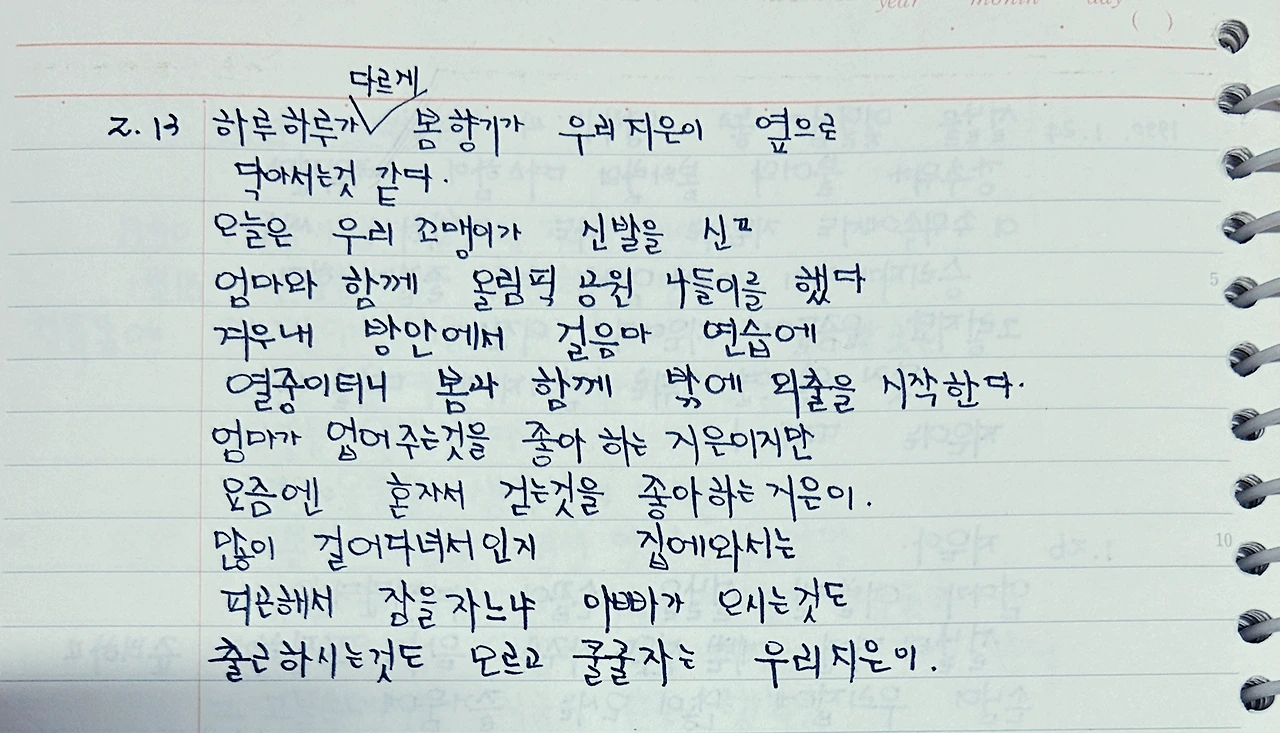 year month day
( )
다르게
2. 13 하루하루가 봄향기가 우리지은이 옆으로
닥아서는것 같다.
오늘은 우리 꼬맹이가 신발을 신고
엄마와 함께 올림픽 공원 나들이를 했다
겨우내 방안에서 걸음마 연습에
열중이터니 봄과 함께 밖에 외출을 시작한다.
엄마가 업어주는것을 좋아 하는 지은이지만
요즘엔 혼자서 걷는것을 좋아하는 지은이.
많이 걸어다녀서인지 집에와서는
피곤해서 잠을자느냐 아빠가 오시는것도
출근하시는것도 모르고 쿨쿨자는 우리지은이.
5
10